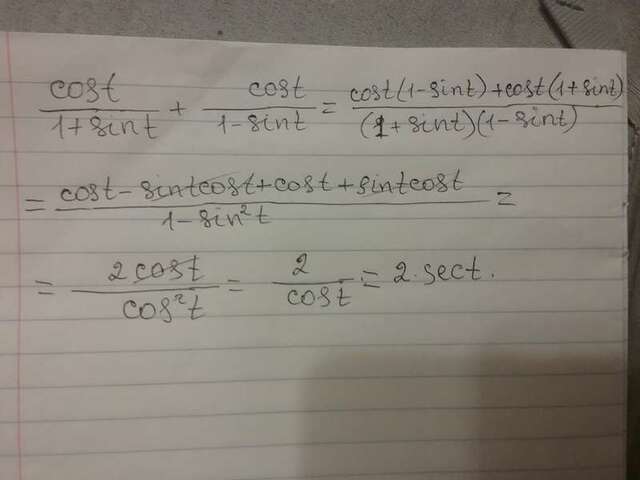 cost/(1+sint) + cost/(1-sint) = (cost(1-sint)+cost(1+sint))/((1+sint)(1-sint))
= (cost-sintcost+cost+sintcost)/(1-sin²t) =
= 2cost/cos²t = 2/cost = 2·sect.